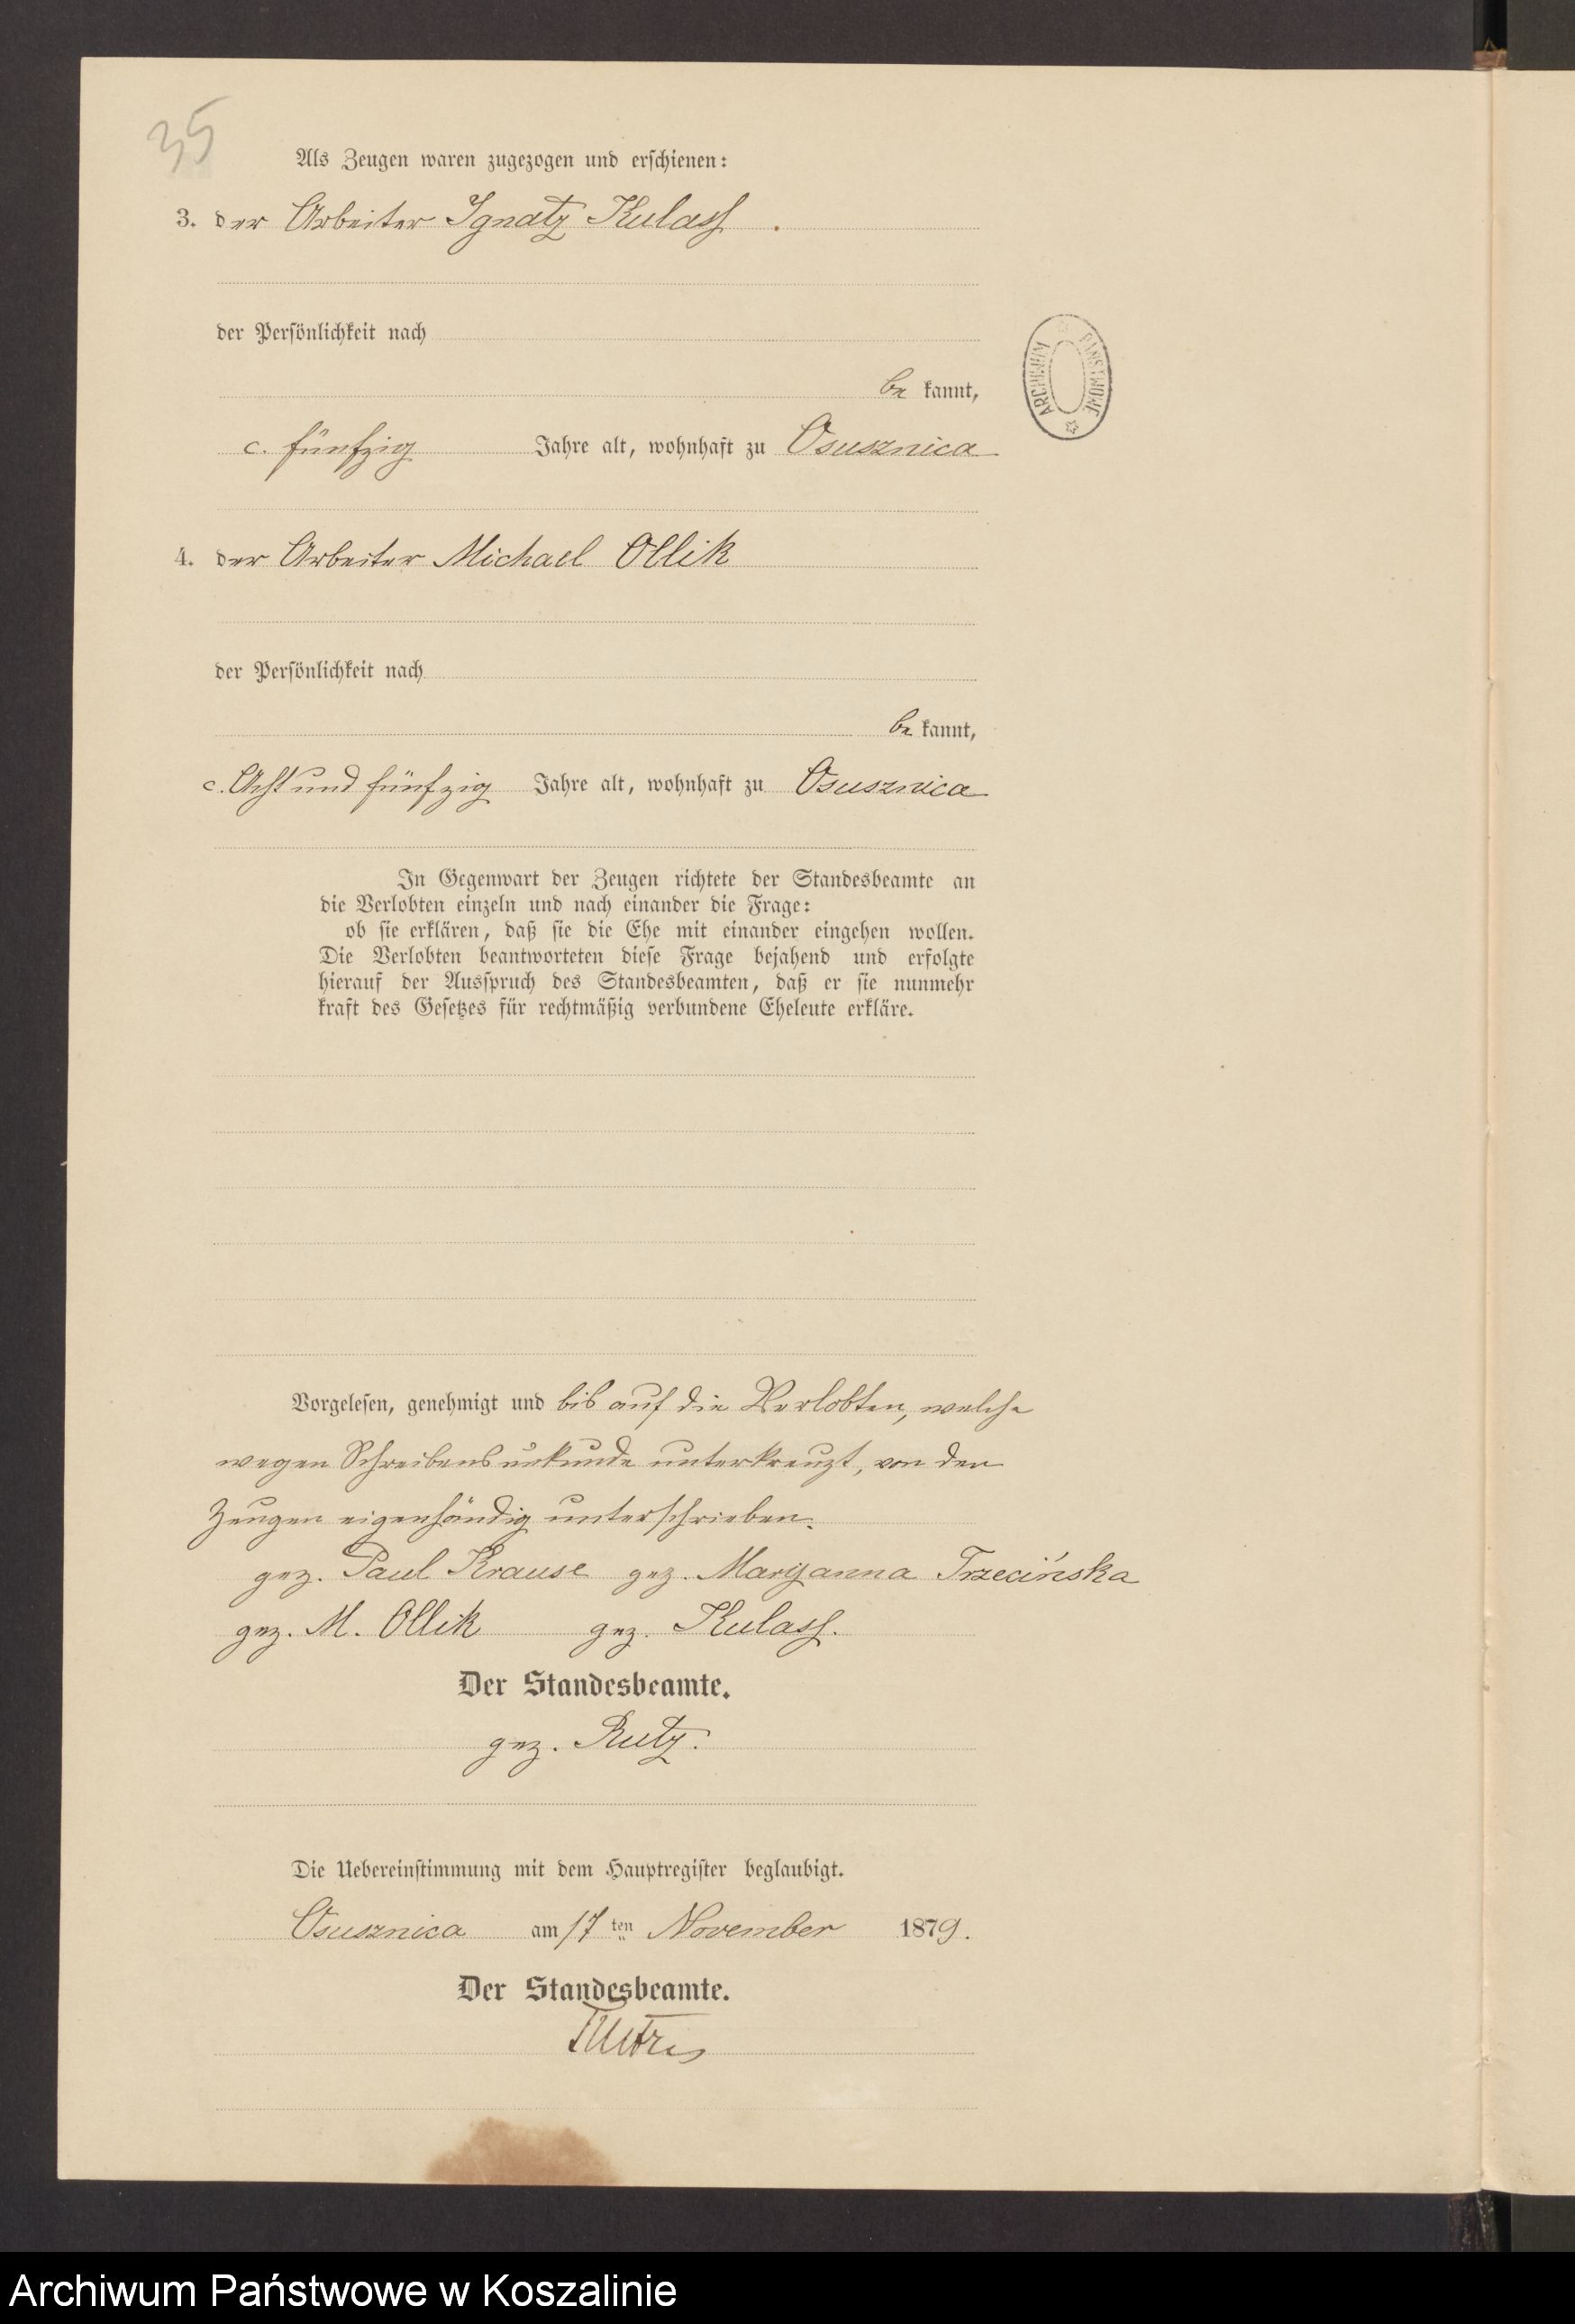 35
Als Zeugen waren zugezogen und erschienen:
3. der Arbeiter Ignatz Kulass
der Persönlichkeit nach
be kannt,
c. fünfzig Jahre alt, wohnhaft zu Osusznica
4. der Arbeiter Michael Ollik
der Persönlichkeit nach
be kannt,
c. Acht und fünfzig Jahre alt, wohnhaft zu Osusznica
In Gegenwart der Zeugen richtete der Standesbeamte an
die Verlobten einzeln und nach einander die Frage:
ob sie erklären, daß sie die Ehe mit einander eingehen wollen.
Die Verlobten beantworteten diese Frage bejahend und erfolgte
hierauf der Ausspruch des Standesbeamten, daß er sie nunmehr
kraft des Gesetzes für rechtmäßig verbundene Eheleute erkläre.
Vorgelesen, genehmigt und bis auf die Verlobten, welche
wegen Schreibensunkunde unterkreuzt, von den
Zeugen eigenhändig unterschrieben.
gez. Paul Krause gez. Maryanna Trzecińska
gez. M. Ollik gez. Kulass.
Der Standesbeamte.
gez. Rutz.
Die Uebereinstimmung mit dem Hauptregister beglaubigt.
Osusznica am 17 ten November 1879.
Der Standesbeamte.
ARCHIWUM PAŃSTWOWE
Archiwum Państwowe w Koszalinie